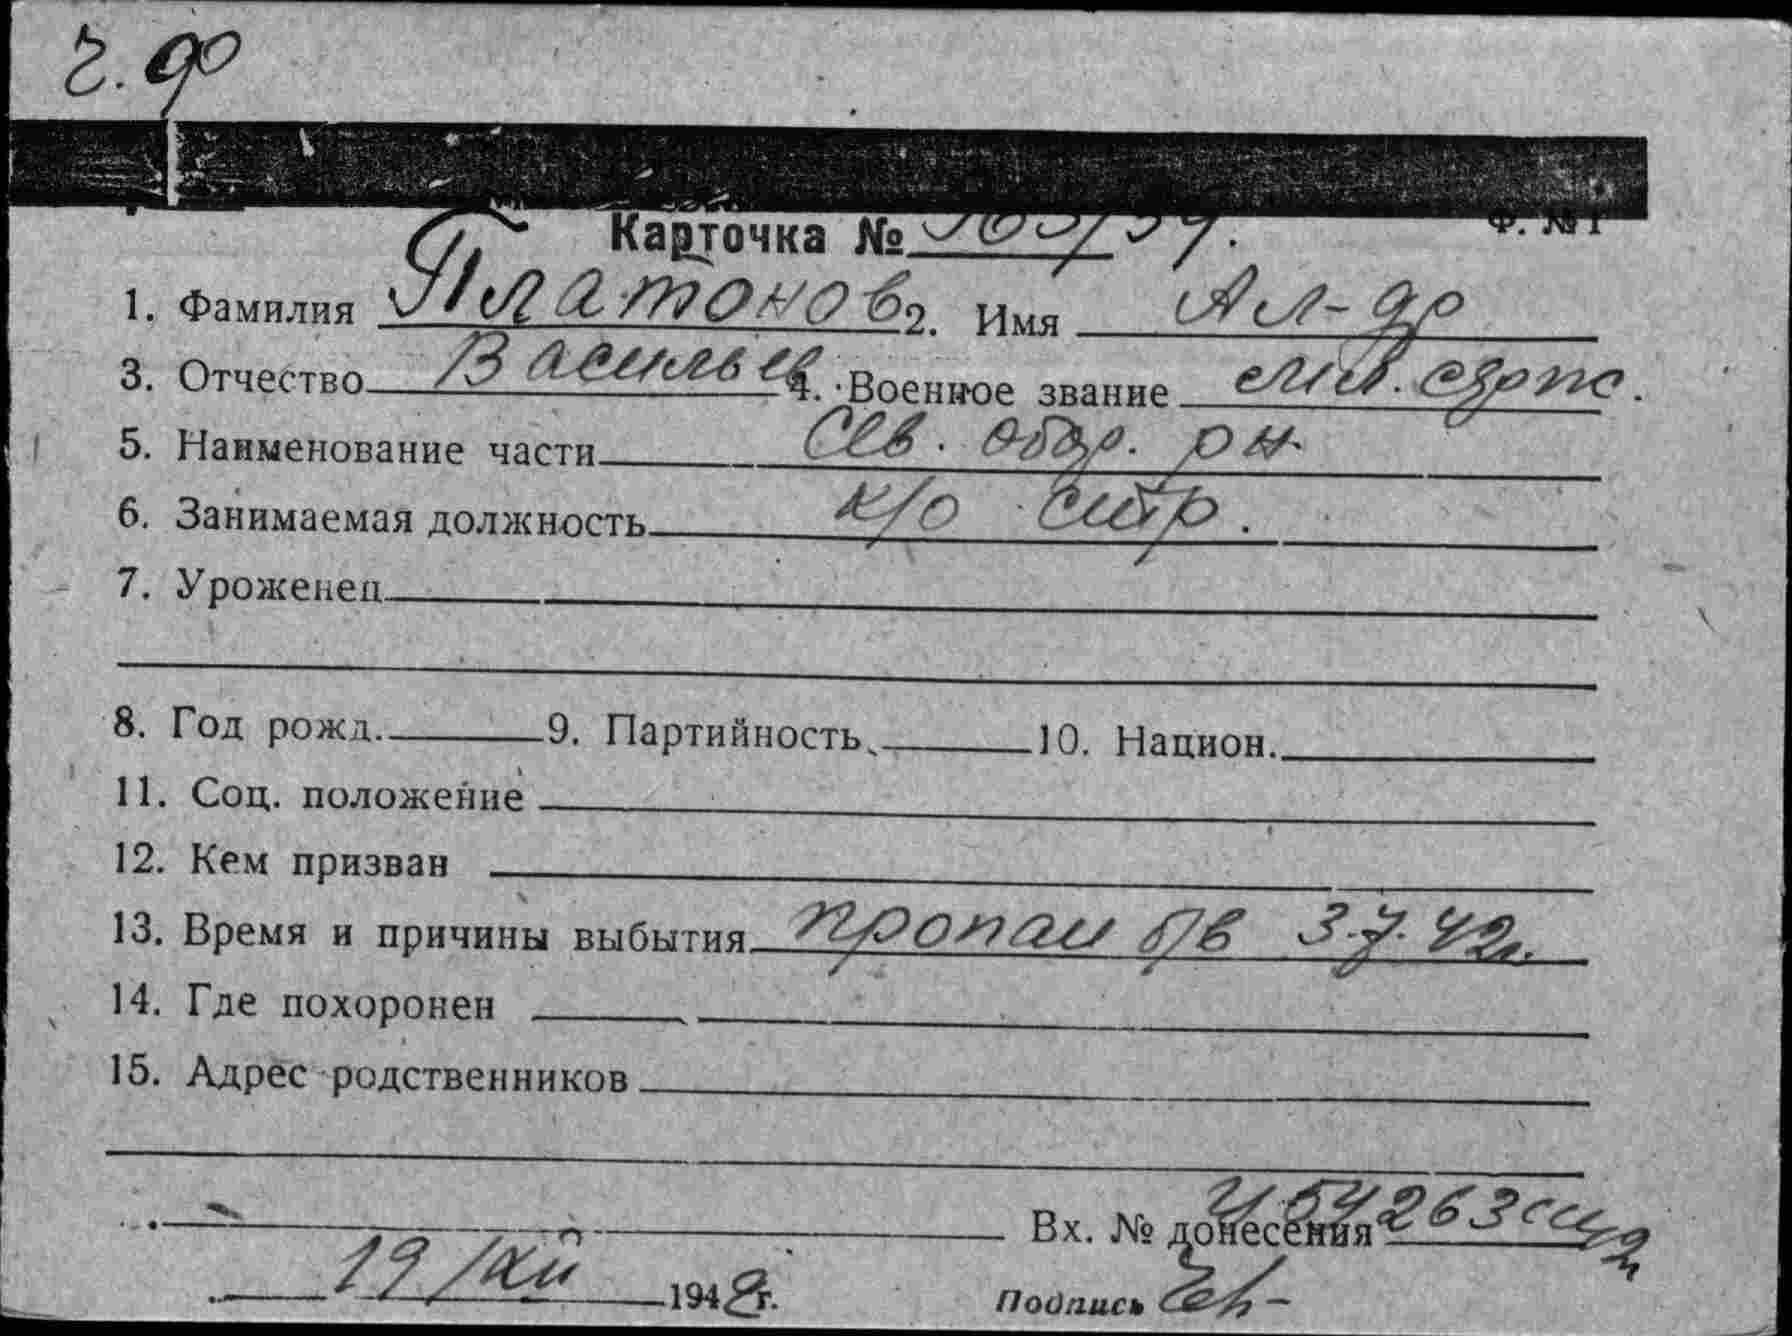 г. ф
Ф. № 1
Карточка №
1. Фамилия Платонов 2. Имя Ал-др
3. Отчество Васильев 4. Военное звание
5. Наименование части Сев. обор. рн
6. Занимаемая должность к/о
7. Уроженец
8. Год рожд. 9. Партийность 10. Национ.
11. Соц. положение
12. Кем призван
13. Время и причины выбытия пропал б/в 3.7.42г.
14. Где похоронен
15. Адрес родственников
Вх. № донесения 54263
19/XII 194 г. Подпись